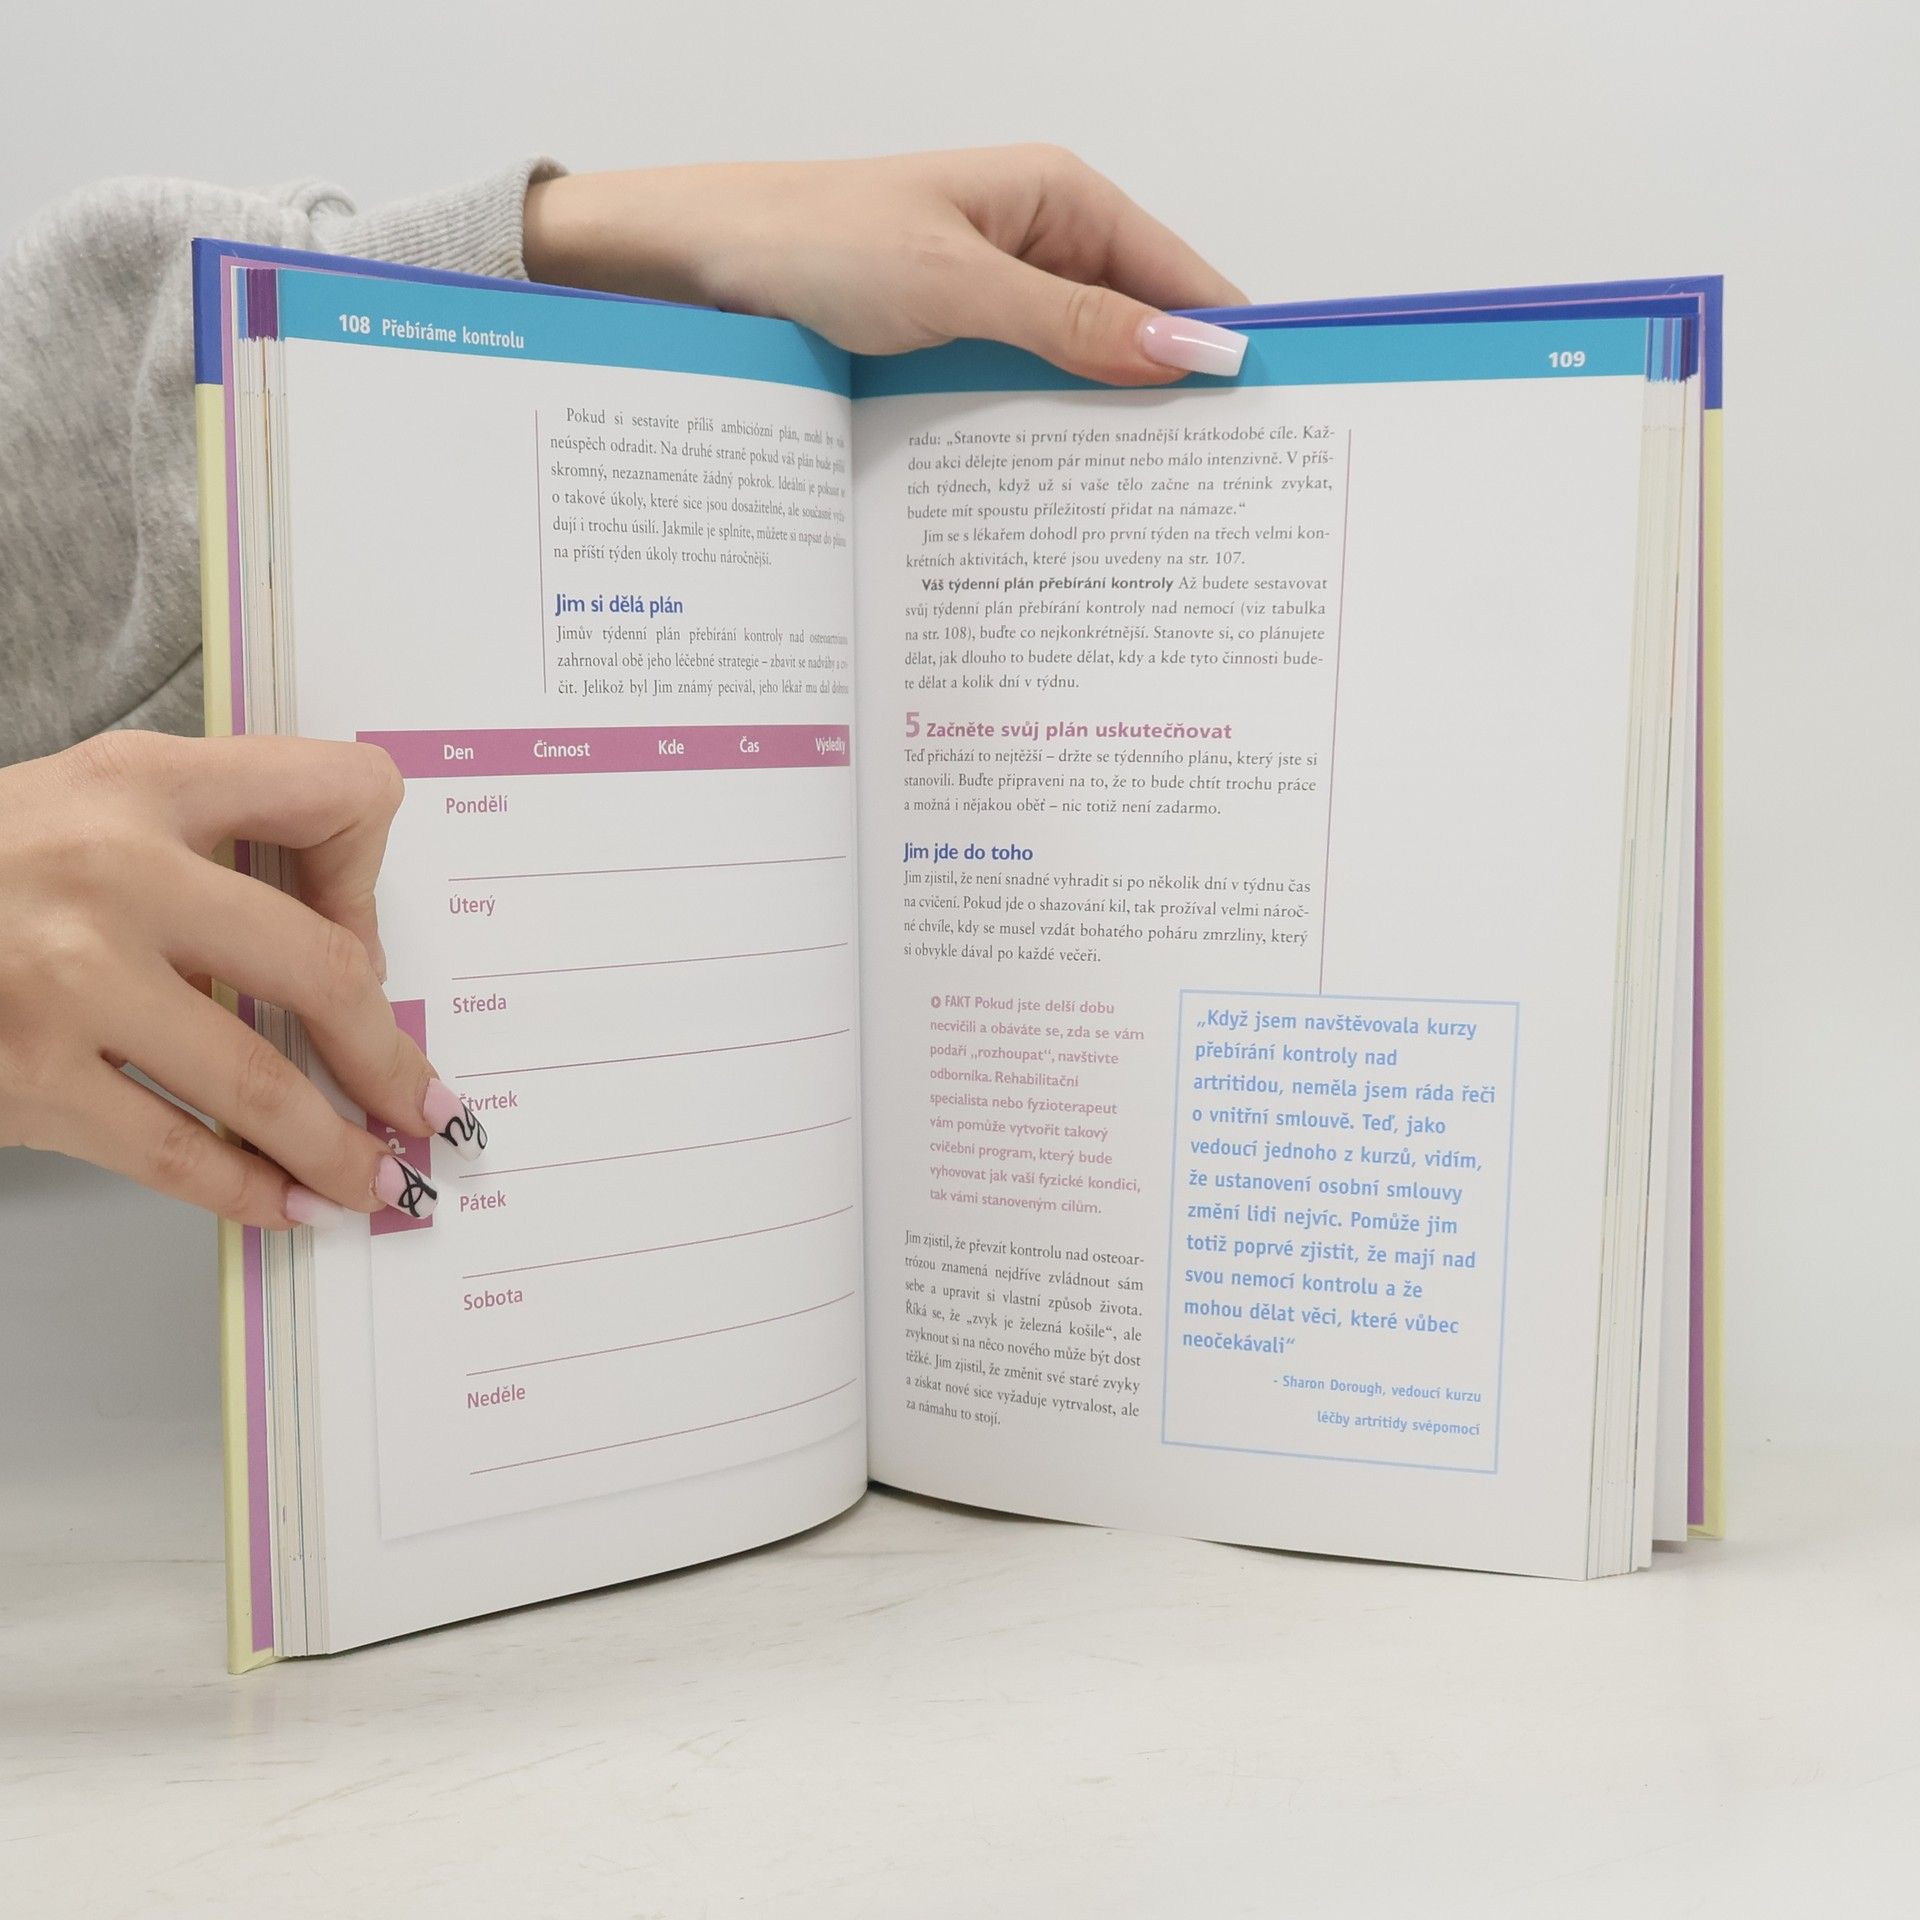 108 Přebíráme kontrolu
Pokud si sestavíte příliš ambiciózní plán, mohl by
neúspěch odradit. Na druhé straně pokud váš plán bude
skromný, nezaznamenáte žádný pokrok. Ideální je
o takové úkoly, které sice jsou dosažitelné, ale současně
dují i trochu úsilí. Jakmile je splníte, můžete si napsat do plánu
na příští týden úkoly trochu náročnější.
Jim si dělá plán
Jimův týdenní plán přebírání kontroly nad
zahrnoval obě jeho léčebné strategie – zbavit se nadváhy a
čit. Jelikož byl Jim známý pecivál, jeho lékař mu dal dobrou
Den Činnost Kde Čas Výsledky
Pondělí
Úterý
Středa
Čtvrtek
Pátek
Sobota
Neděle
109
radu: „Stanovte si první týden snadnější krátkodobé cíle. Kaž-
dou akci dělejte jenom pár minut nebo málo intenzivně. V příš-
tích týdnech, když už si vaše tělo začne na trénink zvykat,
budete mít spoustu příležitostí přidat na námaze.“
Jim se s lékařem dohodl pro první týden na třech velmi kon-
krétních aktivitách, které jsou uvedeny na str. 107.
Váš týdenní plán přebírání kontroly Až budete sestavovat
svůj týdenní plán přebírání kontroly nad nemocí (viz tabulka
na str. 108), buďte co nejkonkrétnější. Stanovte si, co plánujete
dělat, jak dlouho to budete dělat, kdy a kde tyto činnosti bude-
te dělat a kolik dní v týdnu.
5 Začněte svůj plán uskutečňovat
Teď přichází to nejtěžší – držte se týdenního plánu, který jste si
stanovili. Buďte připraveni na to, že to bude chtít trochu práce
a možná i nějakou oběť – nic totiž není zadarmo.
Jim jde do toho
Jim zjistil, že není snadné vyhradit si po několik dní v týdnu čas
na cvičení. Pokud jde o shazování kil, tak prožíval velmi nároč-
né chvíle, kdy se musel vzdát bohatého poháru zmrzliny, který
si obvykle dával po každé večeři.
FAKT Pokud jste delší dobu
necvičili a obáváte se, zda se vám
podaří „rozhoupat“, navštivte
odborníka. Rehabilitační
specialista nebo fyzioterapeut
vám pomůže vytvořit takový
cvičební program, který bude
vyhovovat jak vaší fyzické kondici,
tak vámi stanoveným cílům.
Jim zjistil, že převzít kontrolu nad osteoar-
trózou znamená nejdříve zvládnout sám
sebe a upravit si vlastní způsob života.
Říká se, že „zvyk je železná košile“, ale
zvyknout si na něco nového může být dost
těžké. Jim zjistil, že změnit své staré zvyky
a získat nové sice vyžaduje vytrvalost, ale
za námahu to stojí.
„Když jsem navštěvovala kurzy
přebírání kontroly nad
artritidou, neměla jsem ráda řeči
o vnitřní smlouvě. Teď, jako
vedoucí jednoho z kurzů, vidím,
že ustanovení osobní smlouvy
změní lidi nejvíc. Pomůže jim
totiž poprvé zjistit, že mají nad
svou nemocí kontrolu a že
mohou dělat věci, které vůbec
neočekávali“
- Sharon Dorough, vedoucí kurzu
léčby artritidy svépomocí